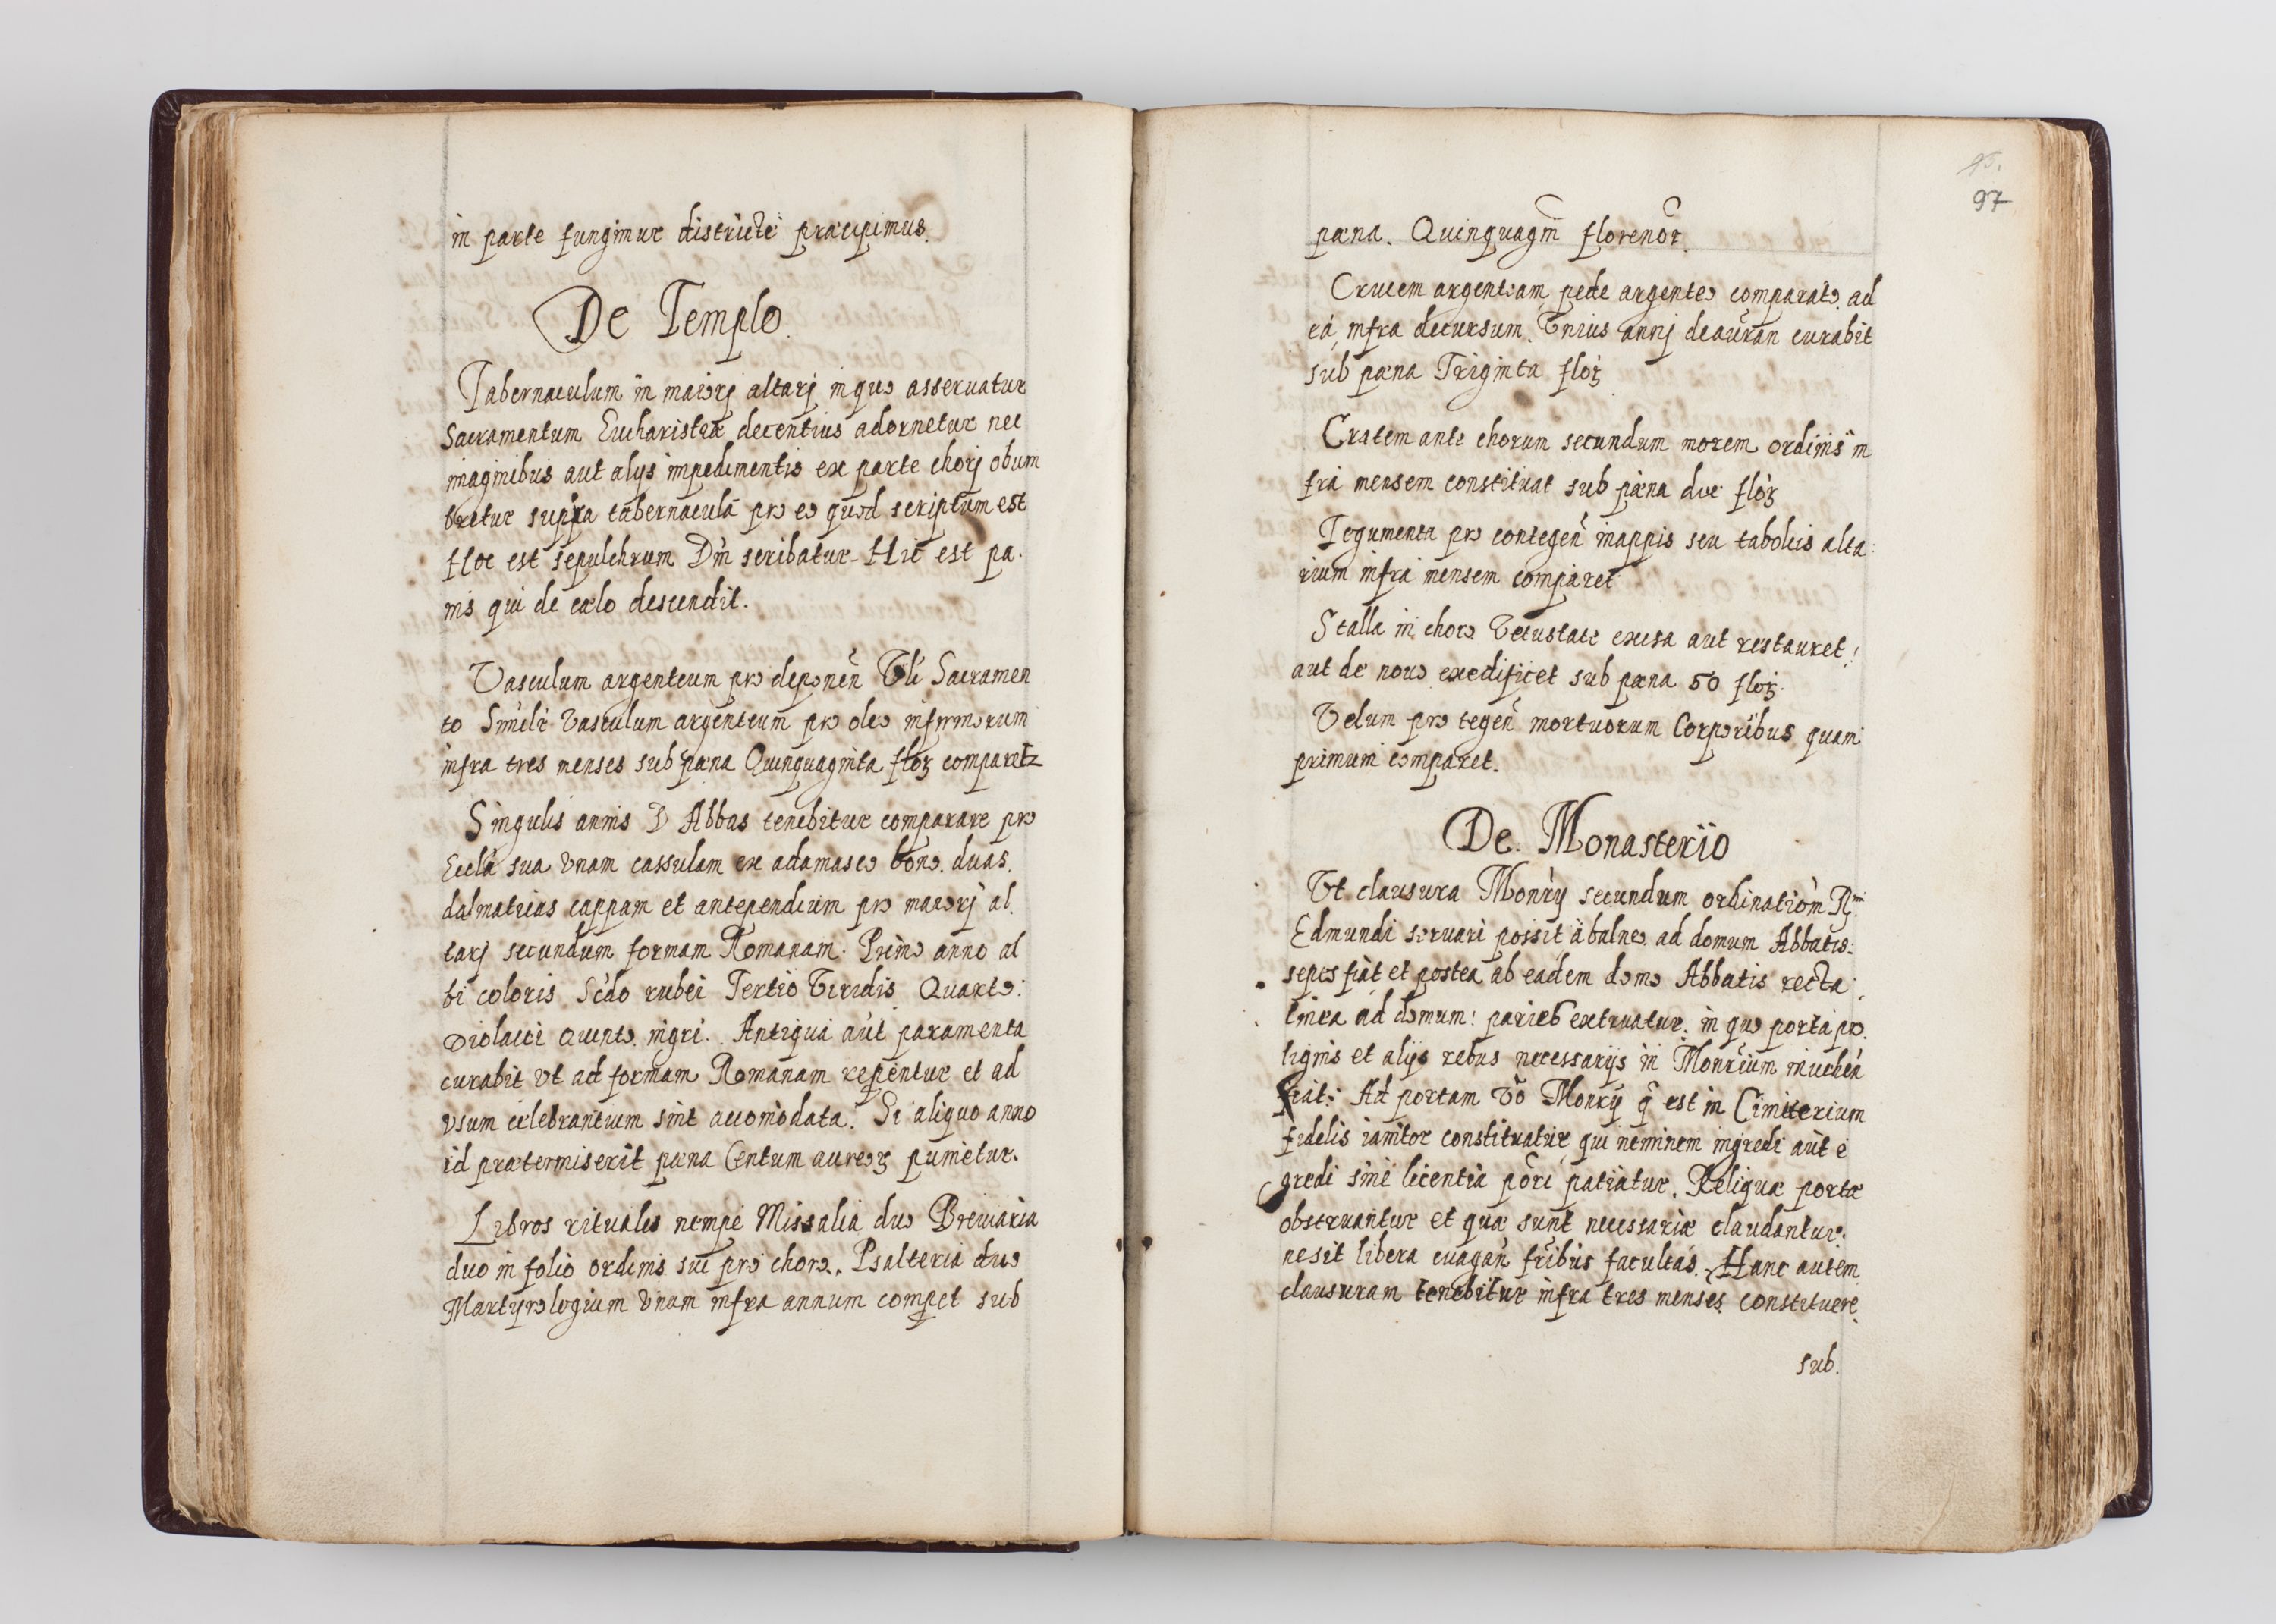 in parte fungimur districte præcipimus.
De Templo.
Tabernaculum in maiorj altarj in quo asseruatur
Sacramentum Eucharistiæ decentius adornetur nec
imaginibus aut alijs impedimentis ex parte chorj obum
bretur supra tabernaculũ pro eo quod scriptum est
Hoc est sepulchrum Dm̃ scribatur Hic est pa.
nis qui de cœlo descendit.
Vasculum argenteum pro deponeñ Sacramen
to Simile vasculum argenteum pro oleo infirmorum
infra tres menses sub pœna Quinquaginta floꝝ comparet
Singulis annis D Abbas tenebitur comparare pro
Eccłã sua vnam cassulam ex adamasco bono. duas.
dalmaticas cappam et antependium pro maiorj al.
tarj secundum formam Romanam. Primo anno al
bi coloris Scdo rubei Tertio Viridis Quarto:
violacei Quinto. nigri. Antiqua aũt paramenta
curabit vt ad formam Romanam et ad
vsum celebrantium sint accomodata. Si aliquo anno
id prætermiserit pœna Centum aureoꝝ punietur.
Libros rituales nempe Missalia duo Breuiaria
duo in folio ordinis sui pro choro. Psalteria duo
Martyrologium vnum infra annum compet sub
97
pœna. Quinquagm̃ florenor̃.
Crucem argenteam pede argenteo comparato. ad
eã infra decursum. Vnius annj deauran curabit
sub pœna Triginta floꝝ
Cratem ante chorum secundum morem ordinis in
fra mensem constituat sub pœna duc floꝝ
Tegumenta pro contegeñ mappis seu taboleis alta:
rium infra mensem comparet
Stalla in choro Vetustate exesa aut restauret!
aut de nouo exedificet sub pœna 50 floꝝ.
Velum pro tegeñ mortuorum Corporibus quam
primum comparet.
De. Monasterio
Vt clausura Monrij secundum ordinatiom̃ R.mi
Edmundi seruari possit á balneo ad domum Abbatis:
sepes fiat et postea ab eadem domo Abbatis recta
linea ad domum: paries extruatur. in quo porta pro.
lignis et alijs rebus necessarijs in Monrium inuehen̄
fiat: Ad portam vo Monrij q̃ est in Cimiterium
fidelis ianitor constituatur qui neminem ingredi aut e
gredi sine licentia pori patiatur. Reliquæ portæ
obstruantur et quæ sunt necessariæ claudantur.
ne sit libera euagañ fribus facultas. Hanc autem
clausuram tenebitur infra tres menses constituere
sub.